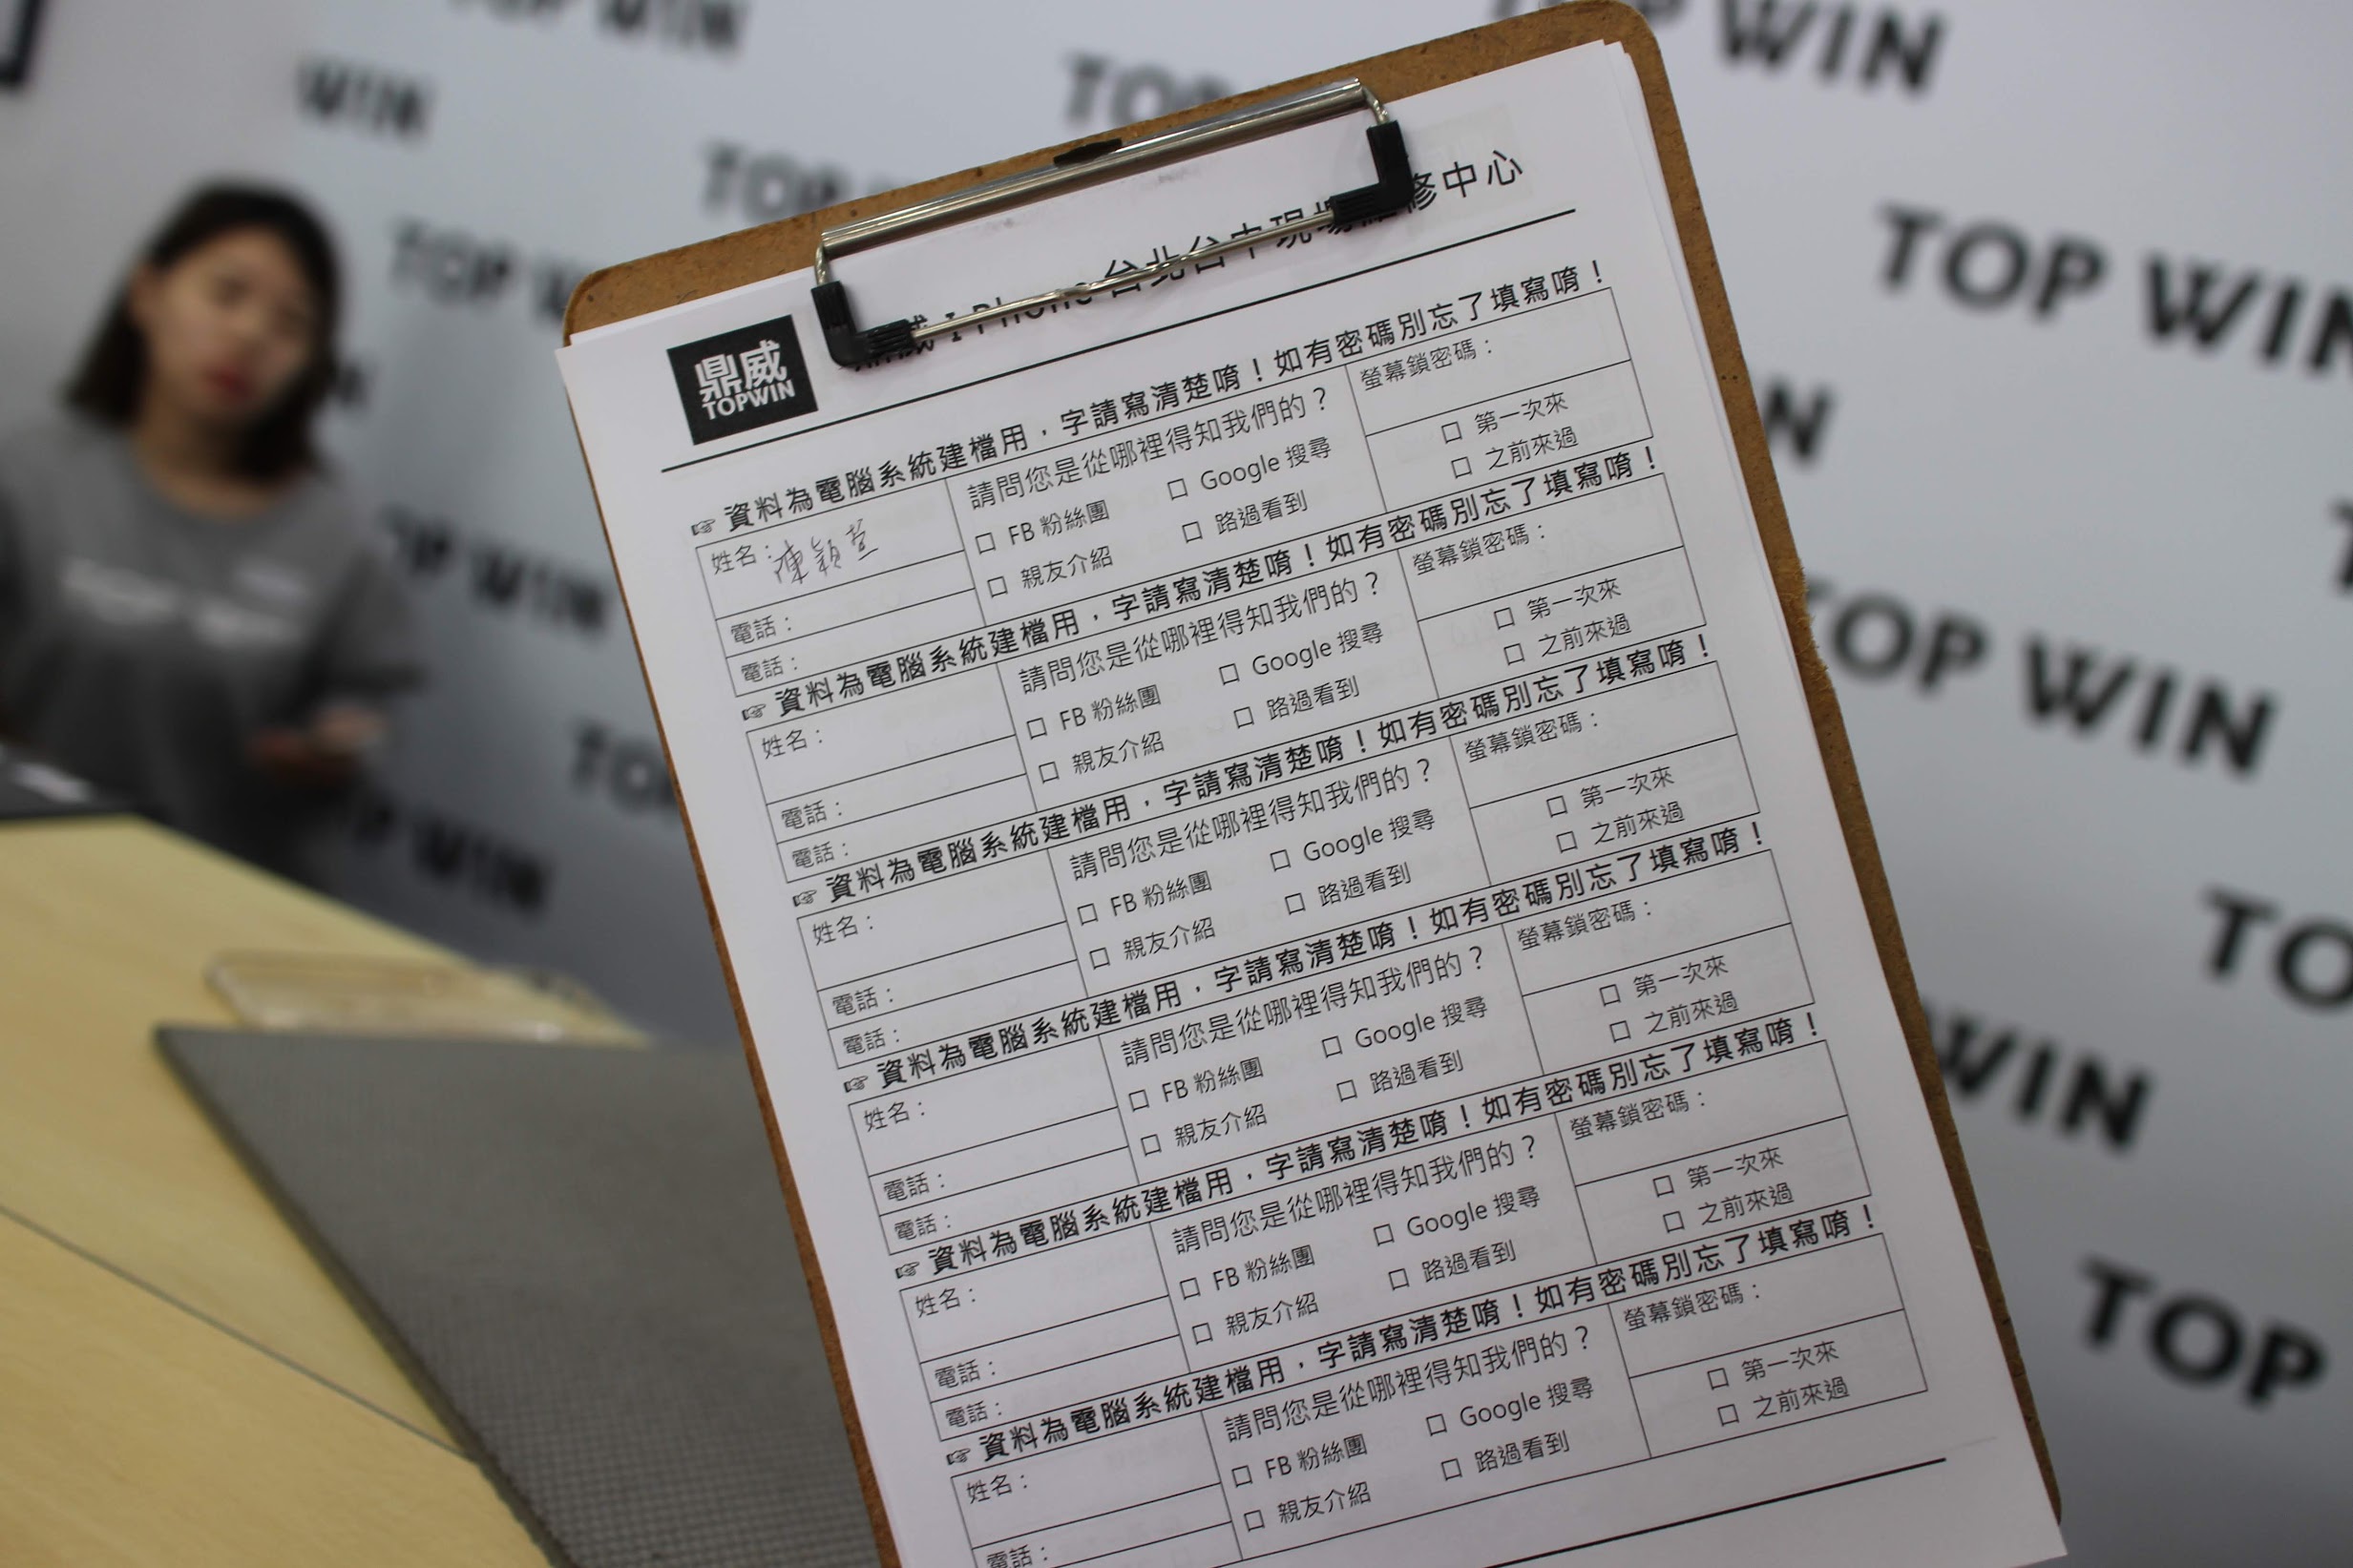 TOP WIN
WIN
TOP WIN
TOP
TOP WIN
TOP WIN
TOP WIN
TOP WIN
TOP
鼎威
TOPWIN
鼎威 I Phone 台北台中現場維修中心
☞ 資料為電腦系統建檔用，字請寫清楚唷！如有密碼別忘了填寫唷！
姓名：陳穎萱
電話：
電話：
請問您是從哪裡得知我們的？
□ FB 粉絲團 □ Google 搜尋
□ 親友介紹 □ 路過看到
螢幕鎖密碼：
□ 第一次來
□ 之前來過
☞ 資料為電腦系統建檔用，字請寫清楚唷！如有密碼別忘了填寫唷！
姓名：
電話：
電話：
請問您是從哪裡得知我們的？
□ FB 粉絲團 □ Google 搜尋
□ 親友介紹 □ 路過看到
螢幕鎖密碼：
□ 第一次來
□ 之前來過
☞ 資料為電腦系統建檔用，字請寫清楚唷！如有密碼別忘了填寫唷！
姓名：
電話：
電話：
請問您是從哪裡得知我們的？
□ FB 粉絲團 □ Google 搜尋
□ 親友介紹 □ 路過看到
螢幕鎖密碼：
□ 第一次來
□ 之前來過
☞ 資料為電腦系統建檔用，字請寫清楚唷！如有密碼別忘了填寫唷！
姓名：
電話：
電話：
請問您是從哪裡得知我們的？
□ FB 粉絲團 □ Google 搜尋
□ 親友介紹 □ 路過看到
螢幕鎖密碼：
□ 第一次來
□ 之前來過
☞ 資料為電腦系統建檔用，字請寫清楚唷！如有密碼別忘了填寫唷！
姓名：
電話：
電話：
請問您是從哪裡得知我們的？
□ FB 粉絲團 □ Google 搜尋
□ 親友介紹 □ 路過看到
螢幕鎖密碼：
□ 第一次來
□ 之前來過
☞ 資料為電腦系統建檔用，字請寫清楚唷！如有密碼別忘了填寫唷！
姓名：
電話：
請問您是從哪裡得知我們的？
□ FB 粉絲團 □ Google 搜尋
□ 親友介紹 □ 路過看到
螢幕鎖密碼：
□ 第一次來
□ 之前來過